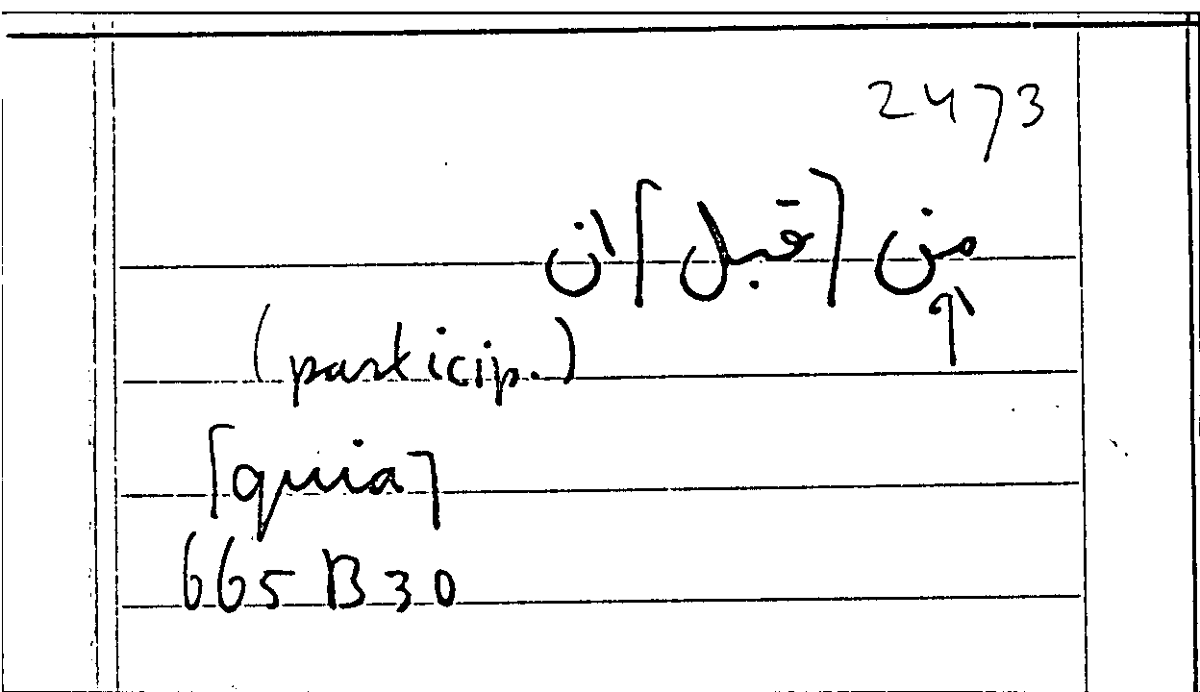 2473
من [قبل] ان
(particip.)
[quia]
665 B 30